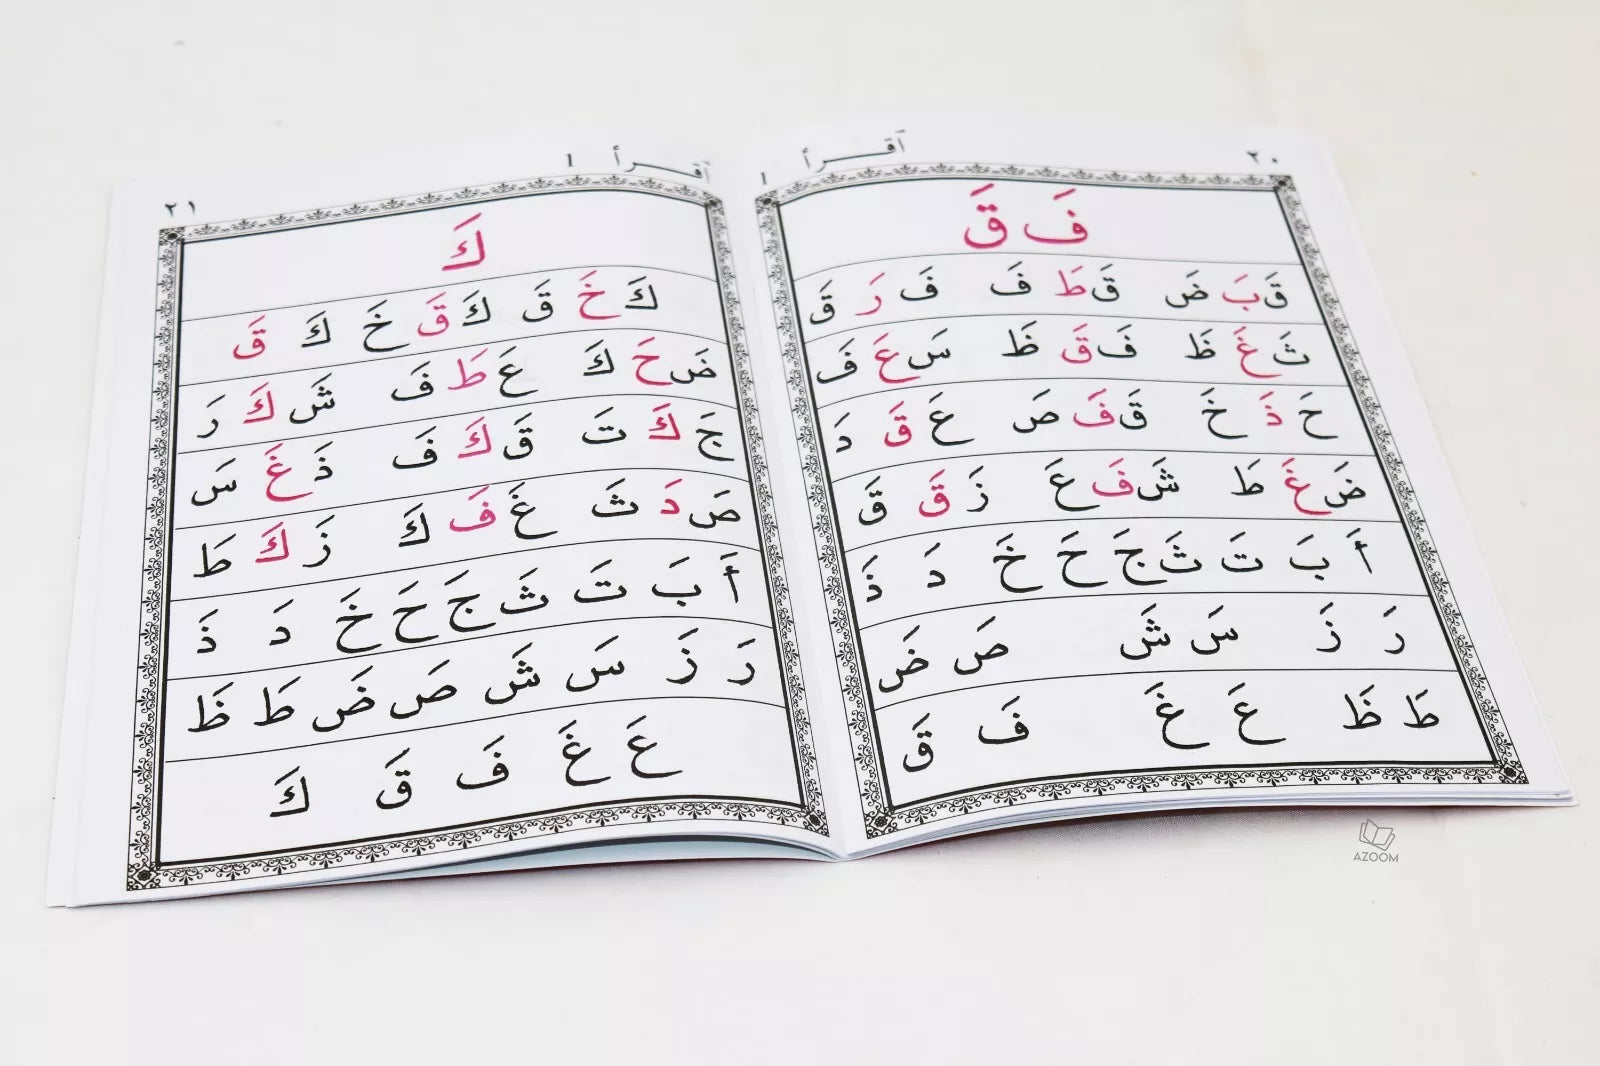 ٢٠ اقرأ ١
فَ قَ
قَ بَ ضَ قَ طَ فَ فَ رَ قَ
ثَ غَ ظَ فَ قَ ظَ سَ عَ فَ
حَ ذَ خَ قَ فَ صَ عَ قَ دَ
ضَ غَ طَ شَ فَ عَ زَ قَ قَ
أَ بَ تَ ثَ جَ حَ خَ دَ ذَ
رَ زَ سَ شَ صَ ضَ
طَ ظَ عَ غَ فَ قَ
اقرأ ١ ٢١
كَ
كَ خَ قَ كَ قَ خَ كَ قَ
ضَ حَ كَ عَ طَ فَ شَ كَ رَ
جَ كَ تَ قَ كَ فَ ذَ غَ سَ
صَ دَ ثَ غَ فَ كَ زَ كَ طَ
أَ بَ تَ ثَ جَ حَ خَ دَ ذَ
رَ زَ سَ شَ صَ ضَ طَ ظَ
عَ غَ فَ قَ كَ
AZOOM